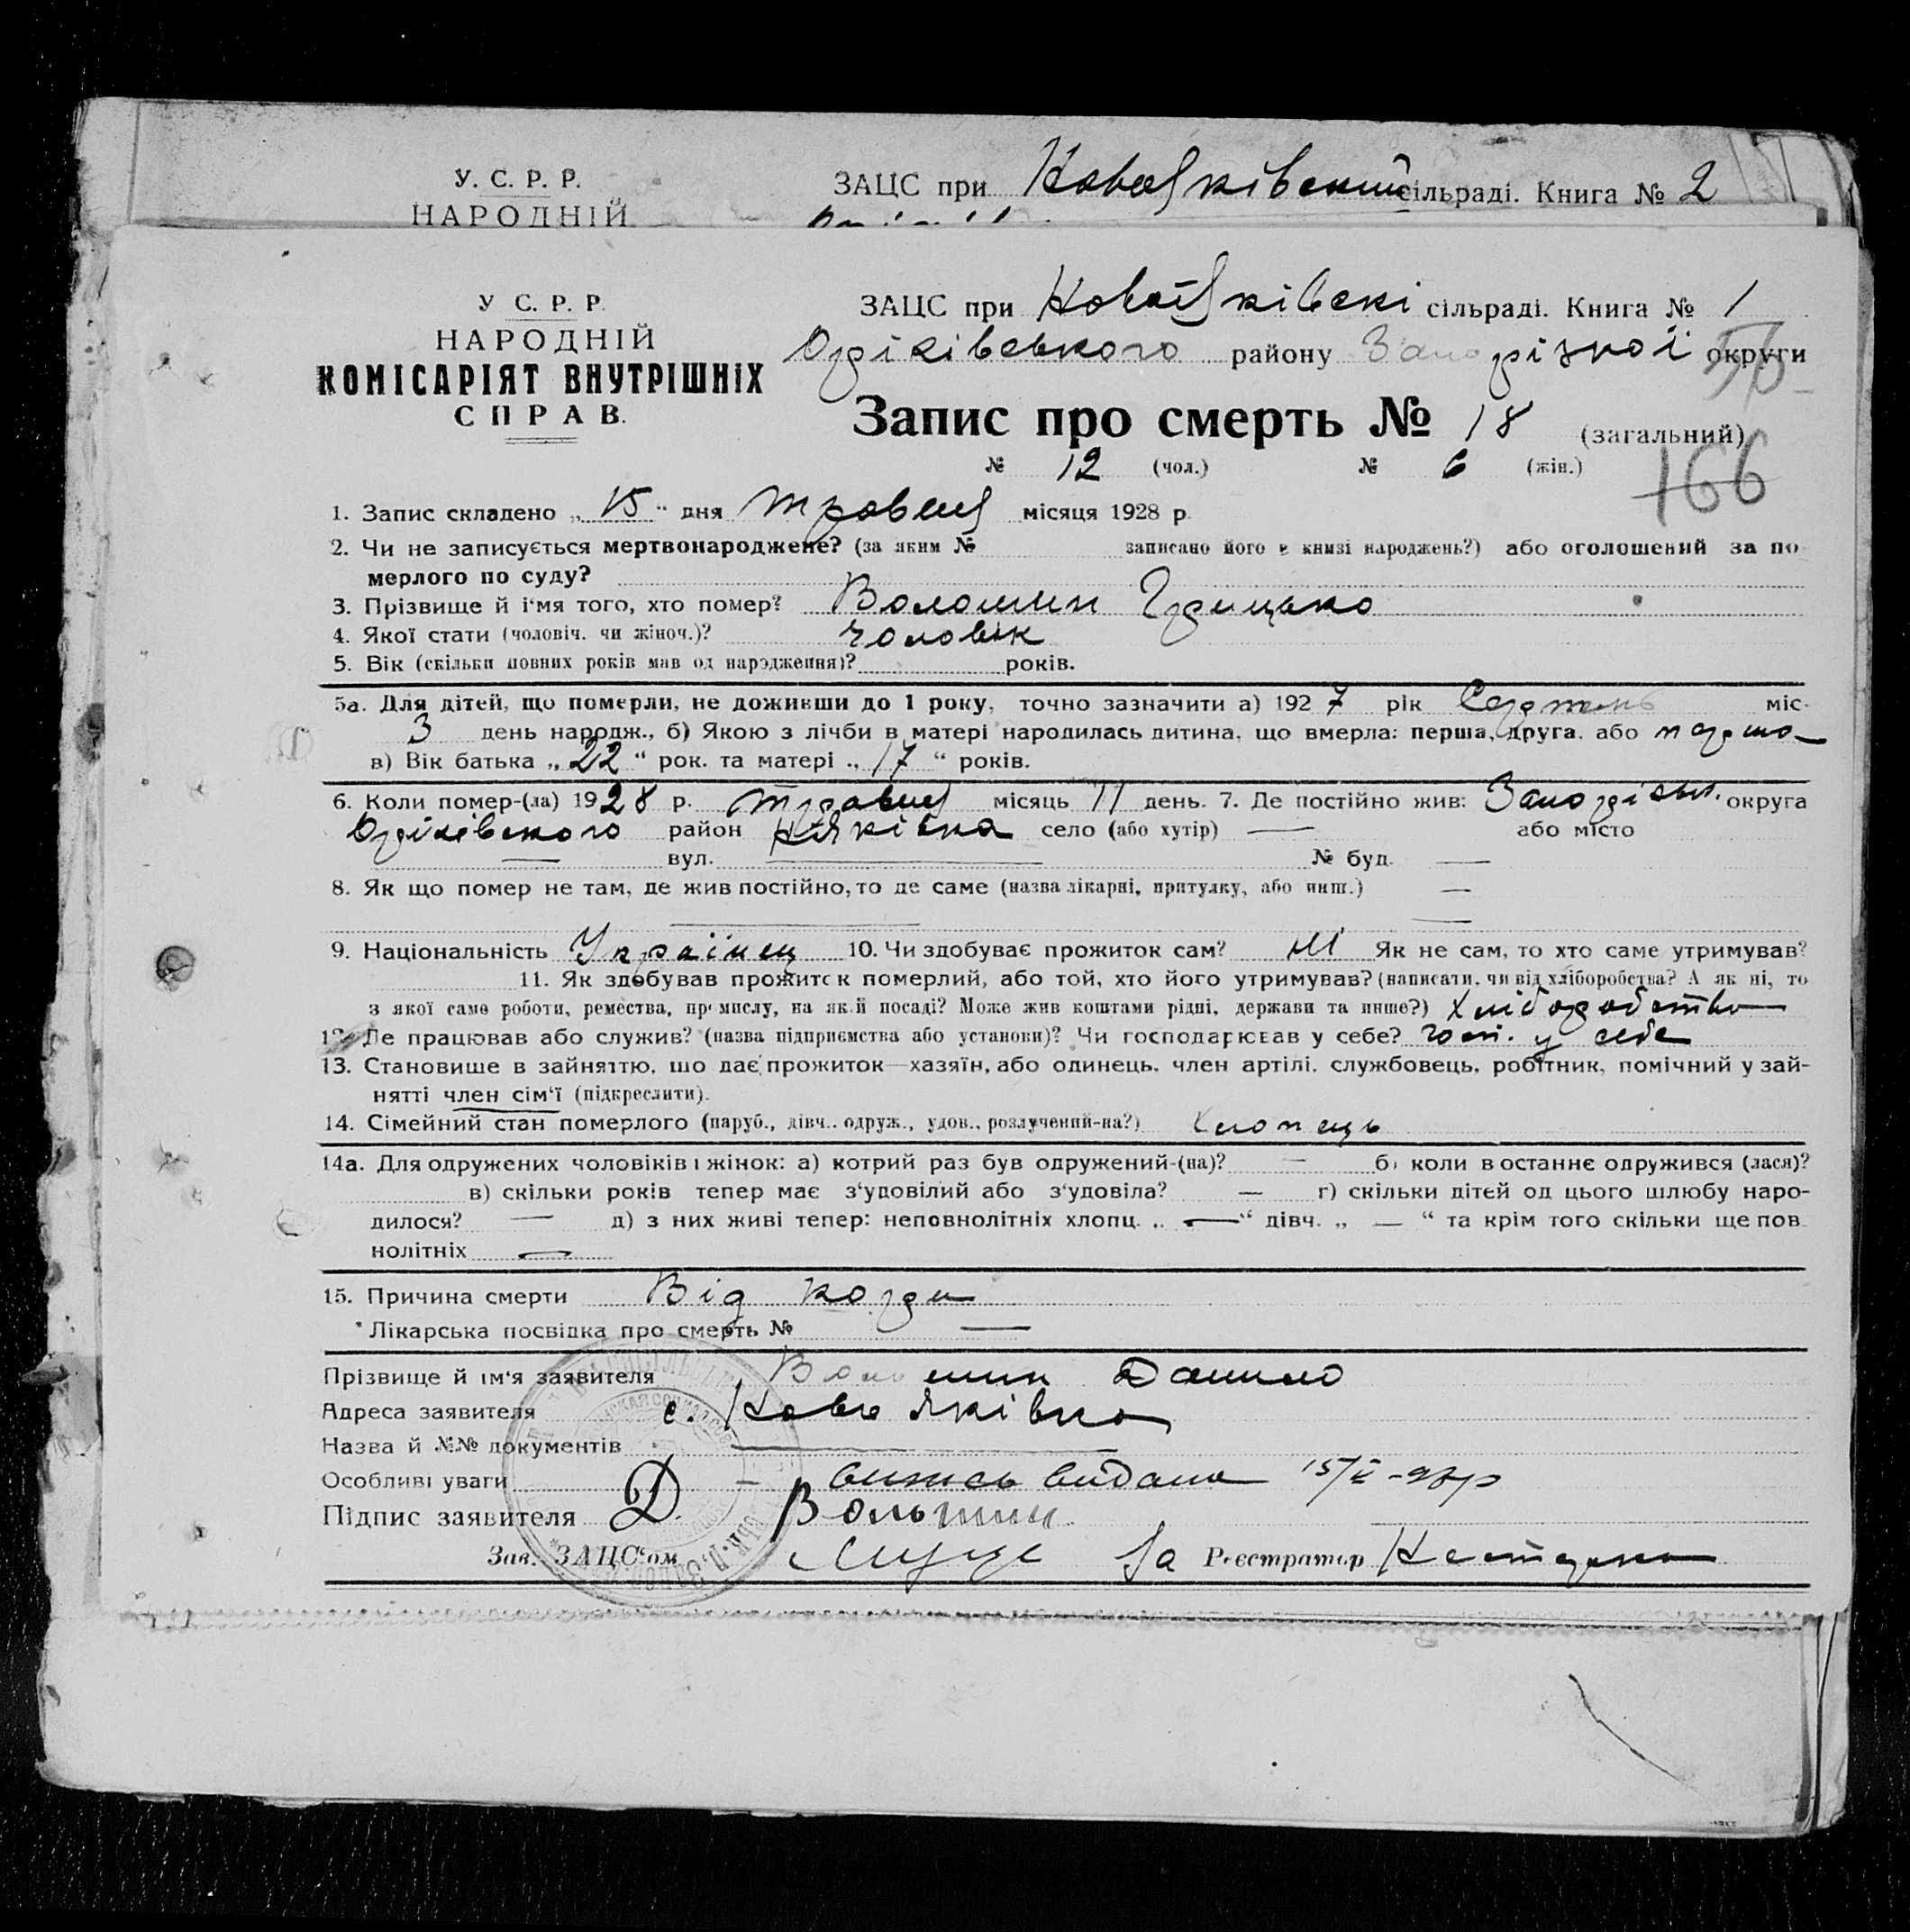 У. С. Р. Р. ЗАЦС при сільраді. Книга № 2
НАРОДНІЙ
У С. Р. Р. ЗАЦС при НовоЯківскі сільраді. Книга № 1
НАРОДНІЙ Оріхівського району Запорізької округи
КОМІСАРІЯТ ВНУТРІШНІХ
СПРАВ.
Запис про смерть № 18 (загальний)
№ 12 (чол.) № 6 (жін.)
166
1. Запис складено „ 15 “ дня травня місяця 1928 р.
2. Чи не записується мертвонароджене? (за яким № записано його в книзі народжень?) або оголошений за по
мерлого по суду?
3. Прізвище й ім'я того, хто помер? Волошин Грицько
4. Якої стати (чоловіч. чи жіноч.)? чоловік
5. Вік (скільки повних років мав од народження)? років.
5а. Для дітей, що померли, не доживши до 1 року, точно зазначити а) 1927 рік Серпень міс-
3 день народж., б) Якою з лічби в матері народилась дитина, що вмерла: перша, друга, або перша
в) Вік батька „ 22 “ рок. та матері „ 17 “ років.
6. Коли помер-(ла) 1928 р. травня місяць 11 день. 7. Де постійно жив: Запоріськ. округа
Оріхівського район НЯківка село (або хутір) — або місто
— вул. — № буд. —
8. Як що помер не там, де жив постійно, то де саме (назва лікарні, притулку, або инш.) —
9. Національність Українец 10. Чи здобуває прожиток сам? ні Як не сам, то хто саме утримував?
11. Як здобував прожиток померлий, або той, хто його утримував? (написати, чи від хліборобства? А як ні, то
з якої саме роботи, ремества, промислу, на якій посаді? Може жив коштами рідні, держави та инше?) хліборобство
12. Де працював або служив? (назва підприємства або установи)? Чи господарював у себе? госп. у себе
13. Становище в зайняттю, що дає прожиток—хазяїн, або одинець, член артілі, службовець, робітник, помічний у зай-
нятті член сім'ї (підкреслити).
14. Сімейний стан померлого (паруб., дівч., одруж., удов., розлучений-на?) хлопець
14а. Для одружених чоловіків і жінок: а) котрий раз був одружений-(на)? — б) коли востаннє одружився (лася)?
в) скільки років тепер має з'удовілий або з'удовіла? — г) скільки дітей од цього шлюбу наро-
дилося? — д) з них живі тепер: неповнолітніх хлопц. „ — “ дівч. „ — “ та крім того скільки ще пов
нолітніх —
15. Причина смерти Від кори
Лікарська посвідка про смерть № —
Прізвище й ім'я заявителя Волошин Данило
Адреса заявителя с. Ново Яківка
Назва й №№ документів —
Особливі уваги — випись видана 15/V-28р
Підпис заявителя Д. Волошин
Зав. ЗАЦС'ом За Реєстратор Нестерко